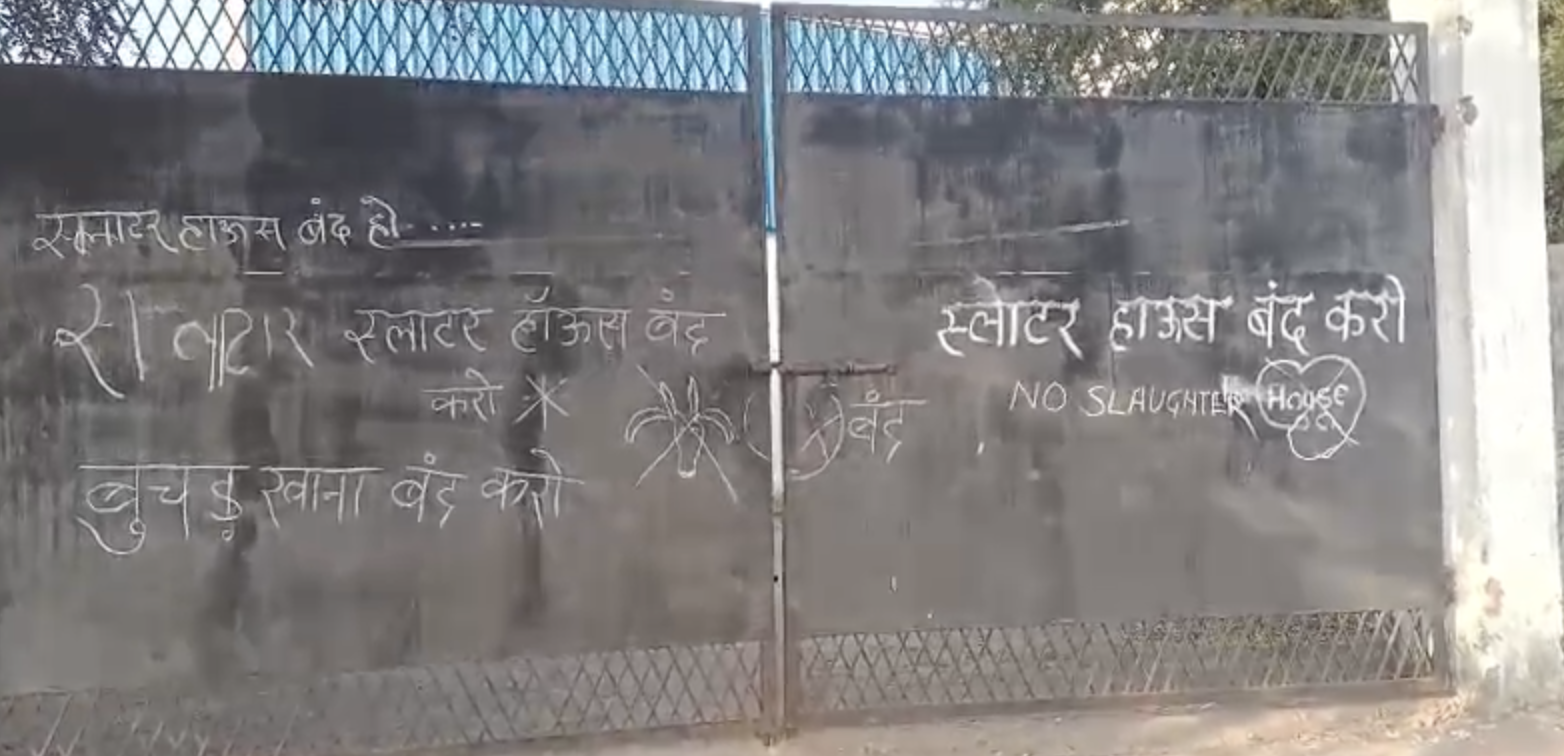 स्लाटर हाऊस बंद हो.....
स्लाटर हॉऊस बंद
करो
बुचड़ खाना बंद करो
बंद
स्लोटर हाऊस बंद करो
NO SLAUGHTER House